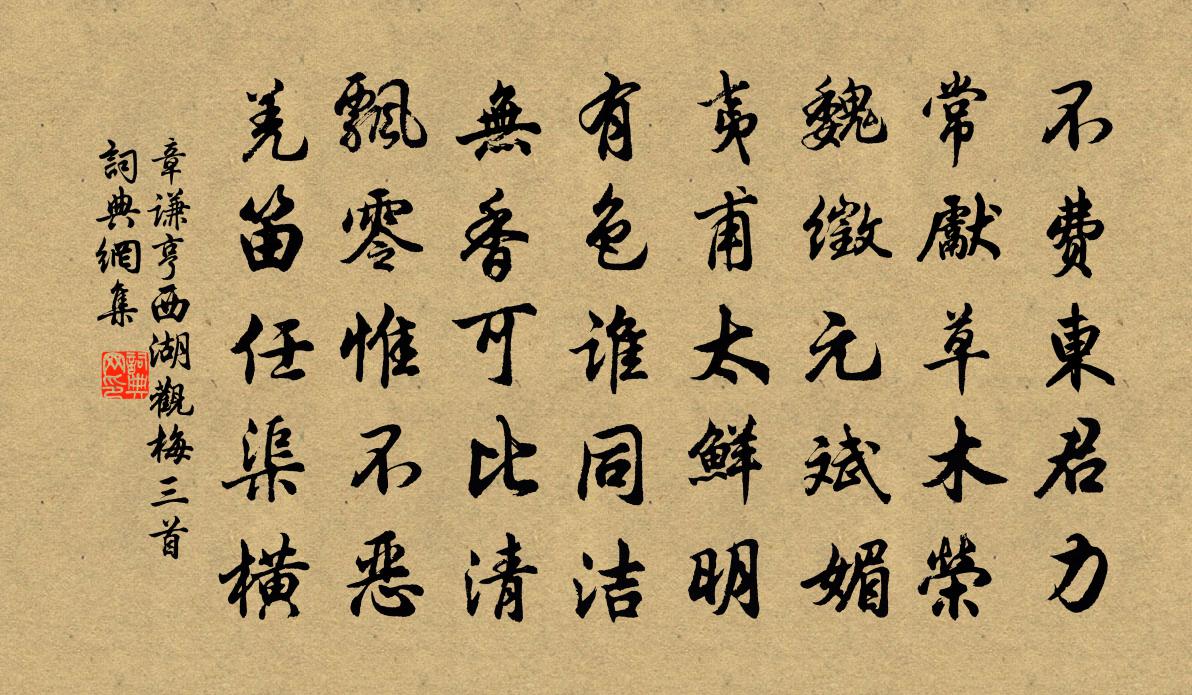 不費東君力
常獻草木榮
魏徵元斌媚
夷甫太鮮明
有色谁同洁
無香可比清
飄零惟不恶
羌笛任渠橫
章谦亨西湖觀梅三首
詞典網集
詞典網印